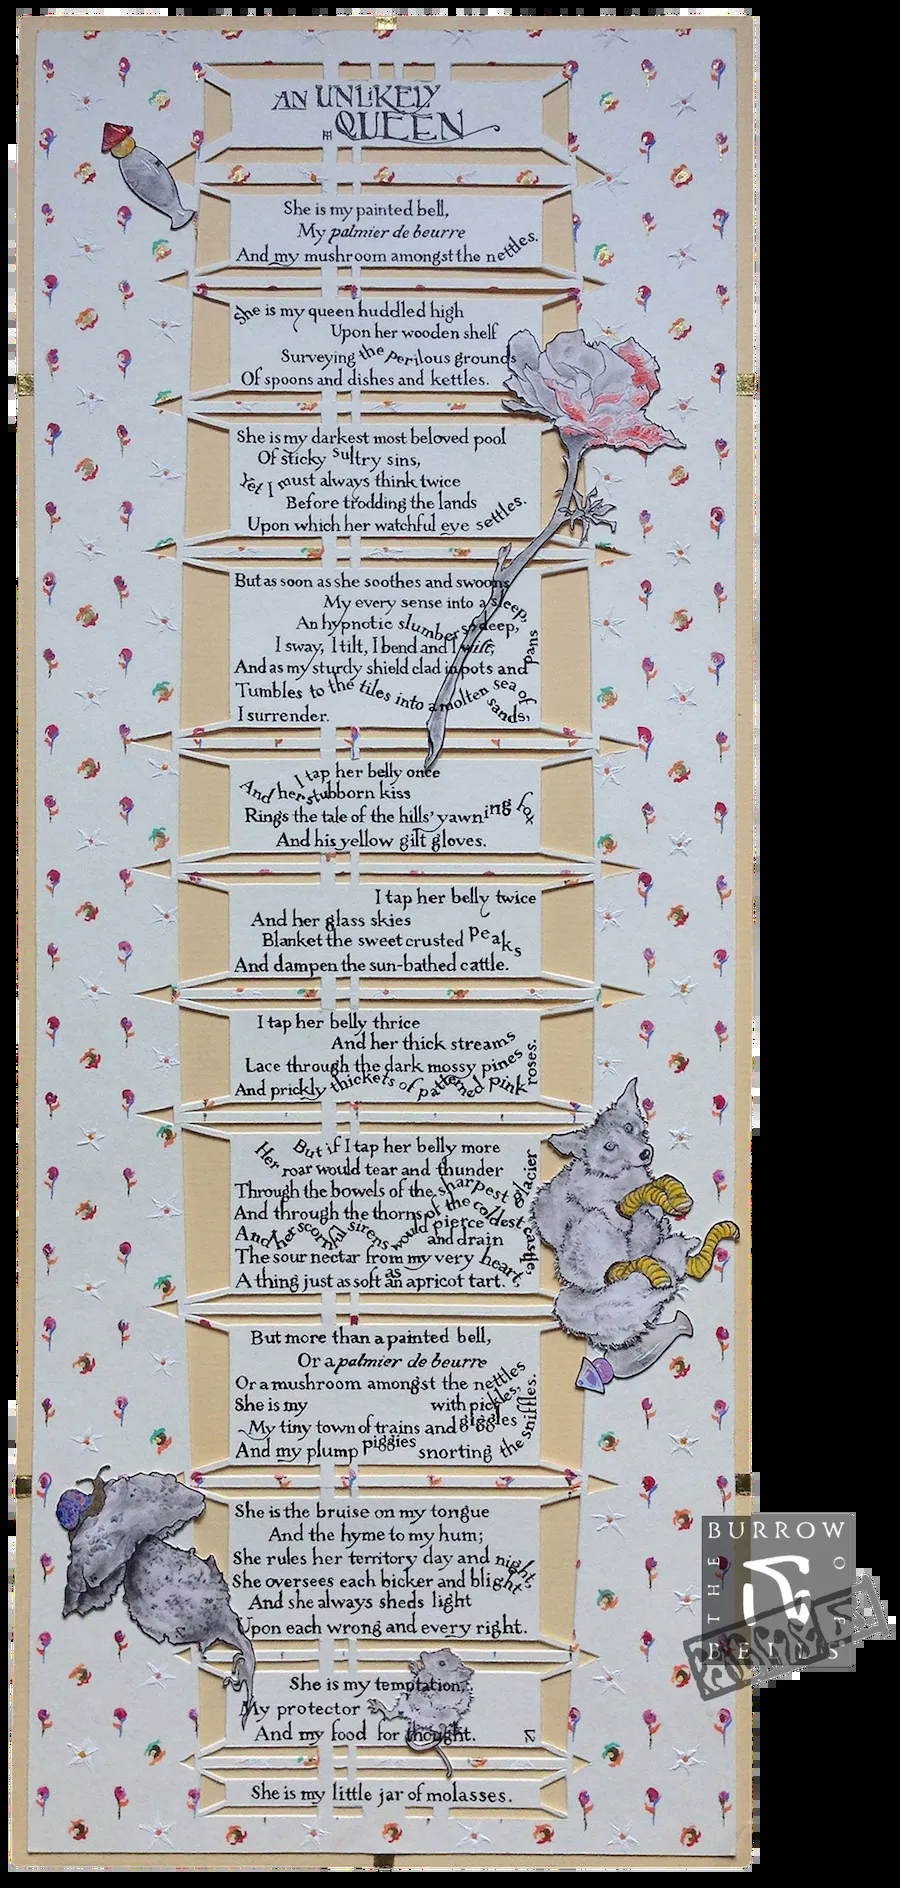 AN UNLIKELY
QUEEN
She is my painted bell,
My palmier de beurre
And my mushroom amongst the nettles.
She is my queen huddled high
Upon her wooden shelf
Surveying the perilous grounds
Of spoons and dishes and kettles.
She is my darkest most beloved pool
Of sticky sultry sins,
Yet I must always think twice
Before trodding the lands
Upon which her watchful eye settles.
But as soon as she soothes and swoons
My every sense into a sleep,
An hypnotic slumber so deep,
I sway, I tilt, I bend and I wilt,
And as my sturdy shield clad in pots and pans
Tumbles to the tiles into a molten sea of sands,
I surrender.
I tap her belly once
And her stubborn kiss
Rings the tale of the hills' yawning fox
And his yellow gilt gloves.
I tap her belly twice
And her glass skies
Blanket the sweet crusted peaks
And dampen the sun-bathed cattle.
I tap her belly thrice
And her thick streams
Lace through the dark mossy pines
And prickly thickets of patterned pink roses.
But if I tap her belly more
Her roar would tear and thunder
Through the bowels of the sharpest glacier
And through the thorns of the coldest castle,
And her scornful sirens would pierce and drain
The sour nectar from my very heart,
A thing just as soft as an apricot tart.
But more than a painted bell,
Or a palmier de beurre
Or a mushroom amongst the nettles
She is my with pickles,
My tiny town of trains and giggles
And my plump piggies snorting the sniffles.
She is the bruise on my tongue
And the hyme to my hum;
She rules her territory day and night,
She oversees each bicker and blight
And she always sheds light
Upon each wrong and every right.
She is my temptation,
My protector
And my food for thought.
She is my little jar of molasses.
THE BURROW OF BELLS